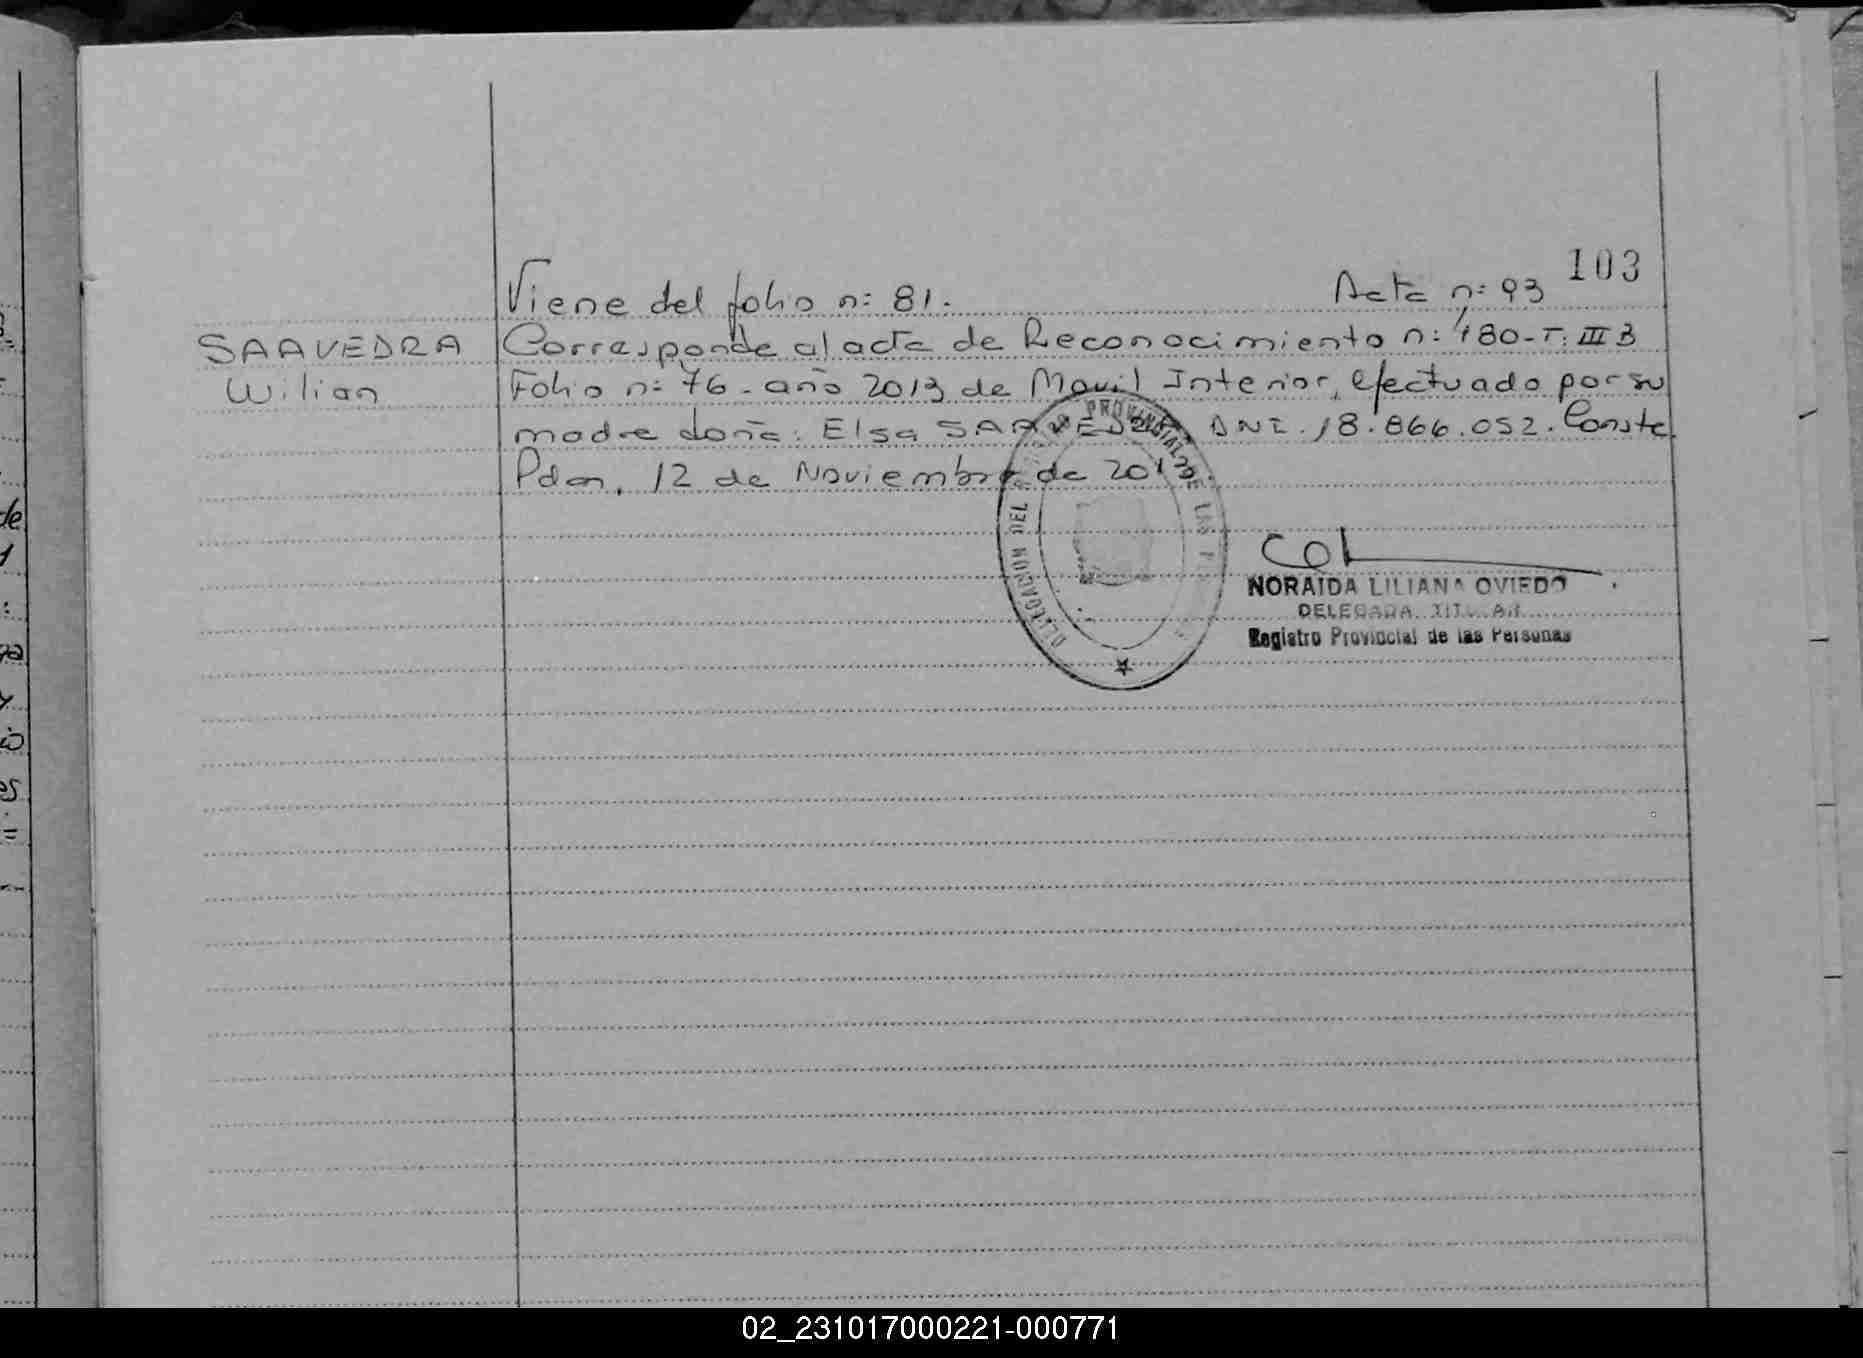 103
Viene del folio n: 81. Acta n: 93
SAAVEDRA Corresponde al acta de Reconocimiento n: 180-T: III B
Wilian Folio n: 76 - año 2013 de Movil Interior, efectuado por su
madre doña: Elsa SAAVEDRA DNI. 18.866.052. Conste
Pdan, 12 de Noviembre de 2013.
DELEGACION DEL REGISTRO PROVINCIAL DE LAS
NORAIDA LILIANA OVIEDO
DELEGADA TITULAR
Registro Provincial de las Personas
de
02_231017000221-000771